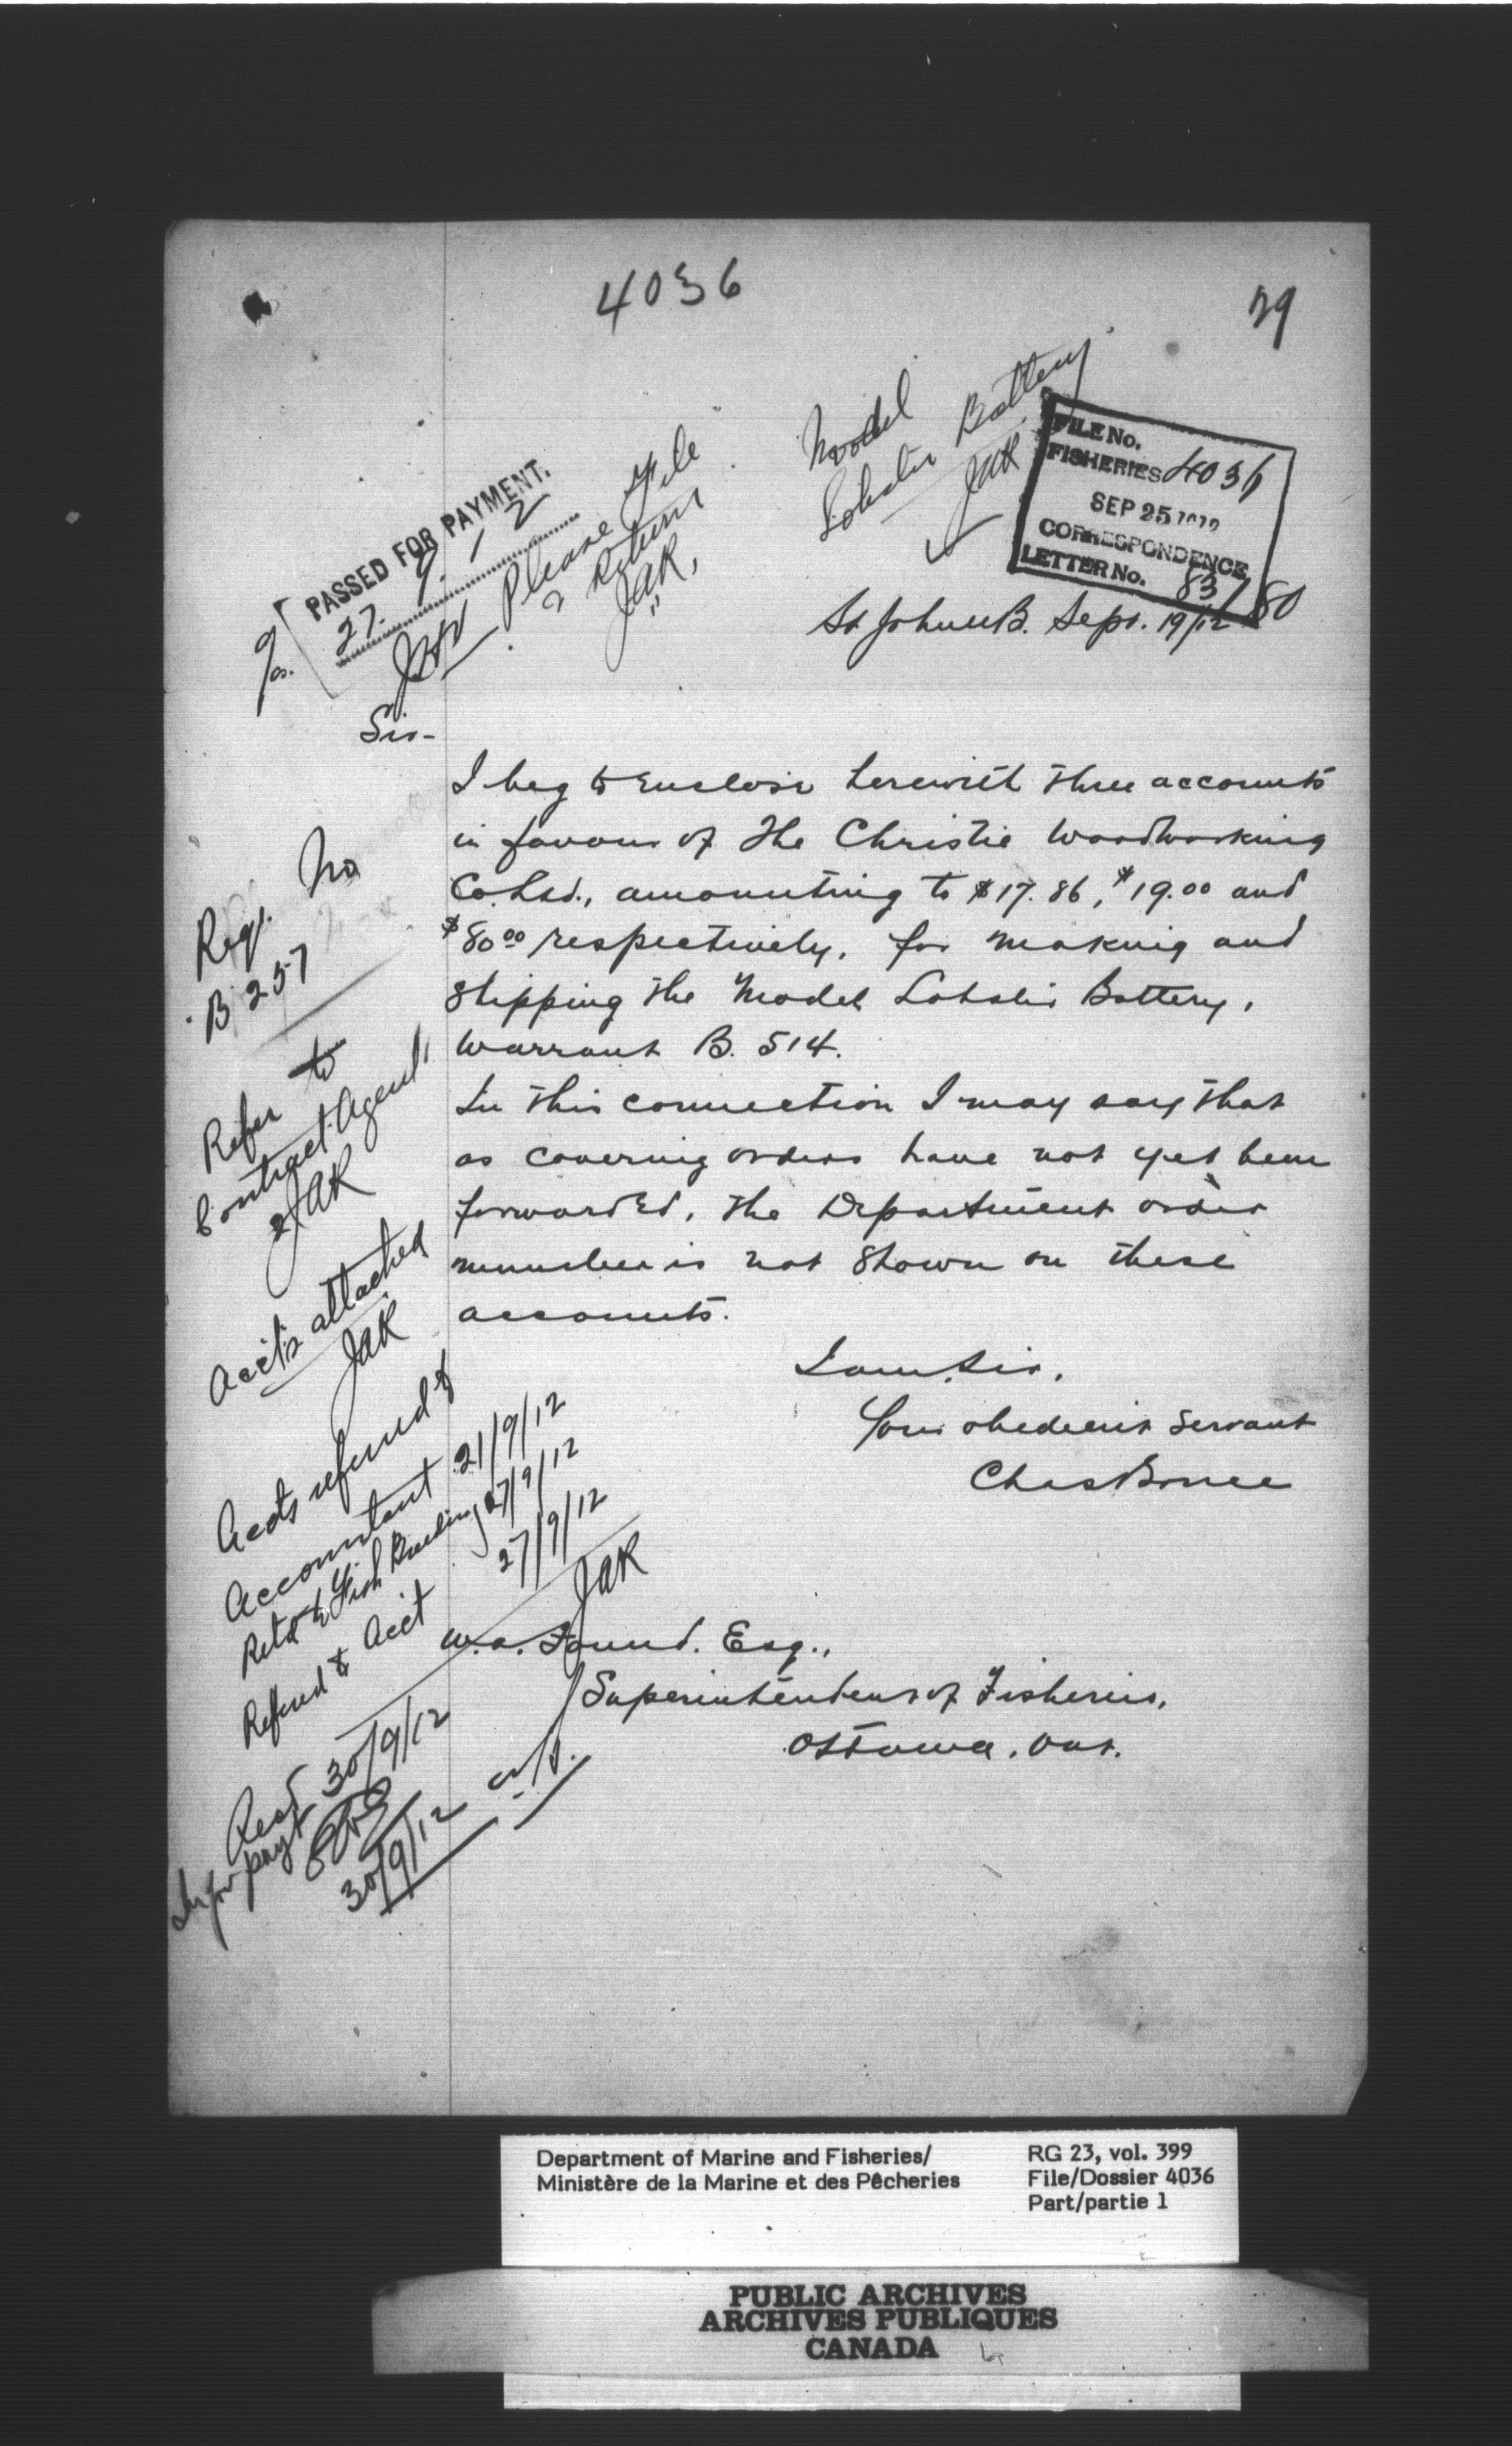 4036
29
Model
Lobster Battery
JAK
FILE No.
FISHERIES 4036
SEP 25
CORRESPONDENCE
LETTER No. 83180
PASSED FOR PAYMENT.
27. 9. 12
Please File
& Return
JAK.
St John N.B. Sept. 19/12
Sir-
I beg to enclose herewith three accounts
in favour of The Christie Woodworking
Co. Ltd., amounting to $17.86, $19.00 and
$80.00 respectively, for making and
shipping the Model Lobster Battery,
Warrant B. 514.
In this connection I may say that
as covering orders have not yet been
forwarded, the Department order
number is not shown on these
accounts.
I am, Sir,
Your obedient servant
Chas Bruce
W. A. Found. Esq.,
Superintendent of Fisheries,
Ottawa, Ont.
Req. No
B 257
Refer to
Contract Agent
JAK
Acct's attached
JAK
Accts referred to
Accountant 21/9/12
Retd to Fish Breeding 27/9/12
Referred to Acct 27/9/12
JAK
Recd 30/9/12
for payt
30/9/12
Department of Marine and Fisheries/
Ministère de la Marine et des Pêcheries
RG 23, vol. 399
File/Dossier 4036
Part/partie 1
PUBLIC ARCHIVES
ARCHIVES PUBLIQUES
CANADA